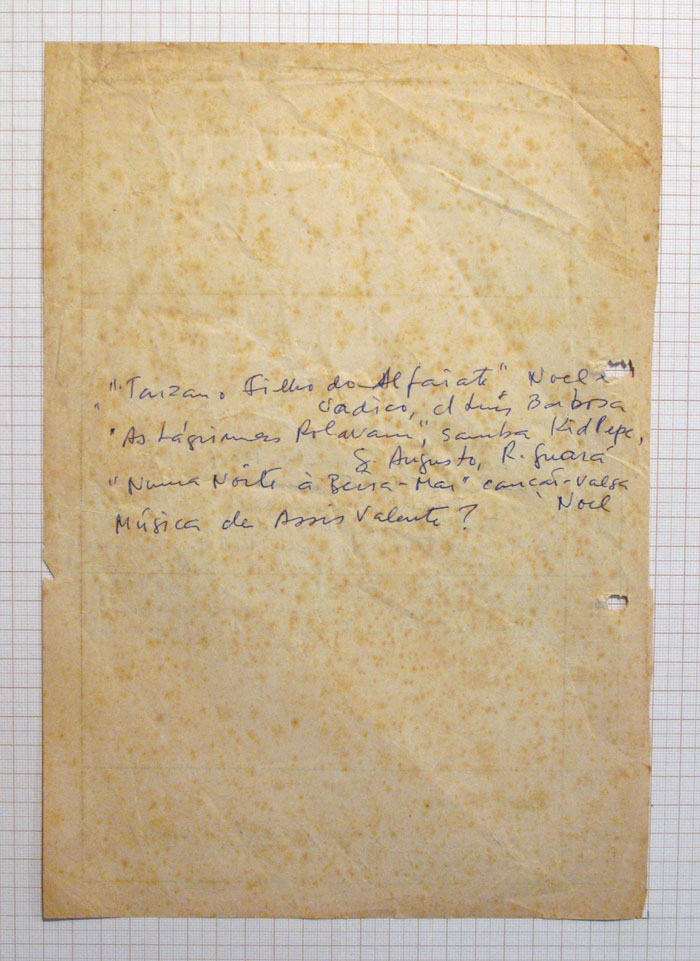 "Tarzan o Filho do Alfaiate" Noel e
Vadico, c/ Luís Barbosa
"As Lágrimas Rolavam", samba Kid Pepe,
G. Augusto, R. Guará
"Numa Noite à Beira-Mar" canção-valsa
Noel
Música de Assis Valente?